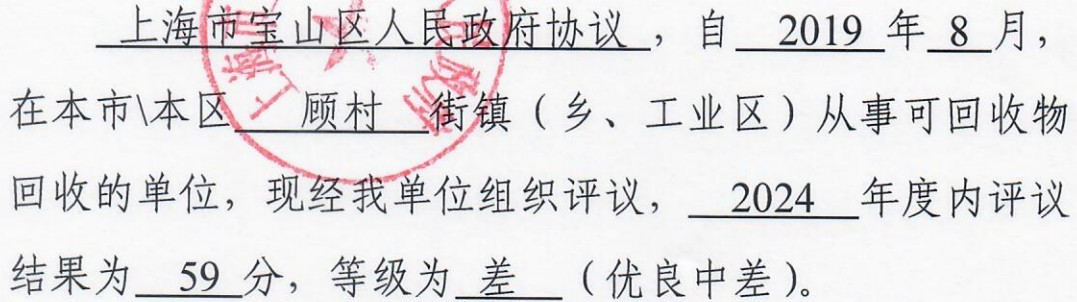 上海市宝山区人民政府协议，自 2019 年 8 月，
在本市\本区 顾村 街镇（乡、工业区）从事可回收物
回收的单位，现经我单位组织评议， 2024 年度内评议
结果为 59 分，等级为 差 （优良中差）。